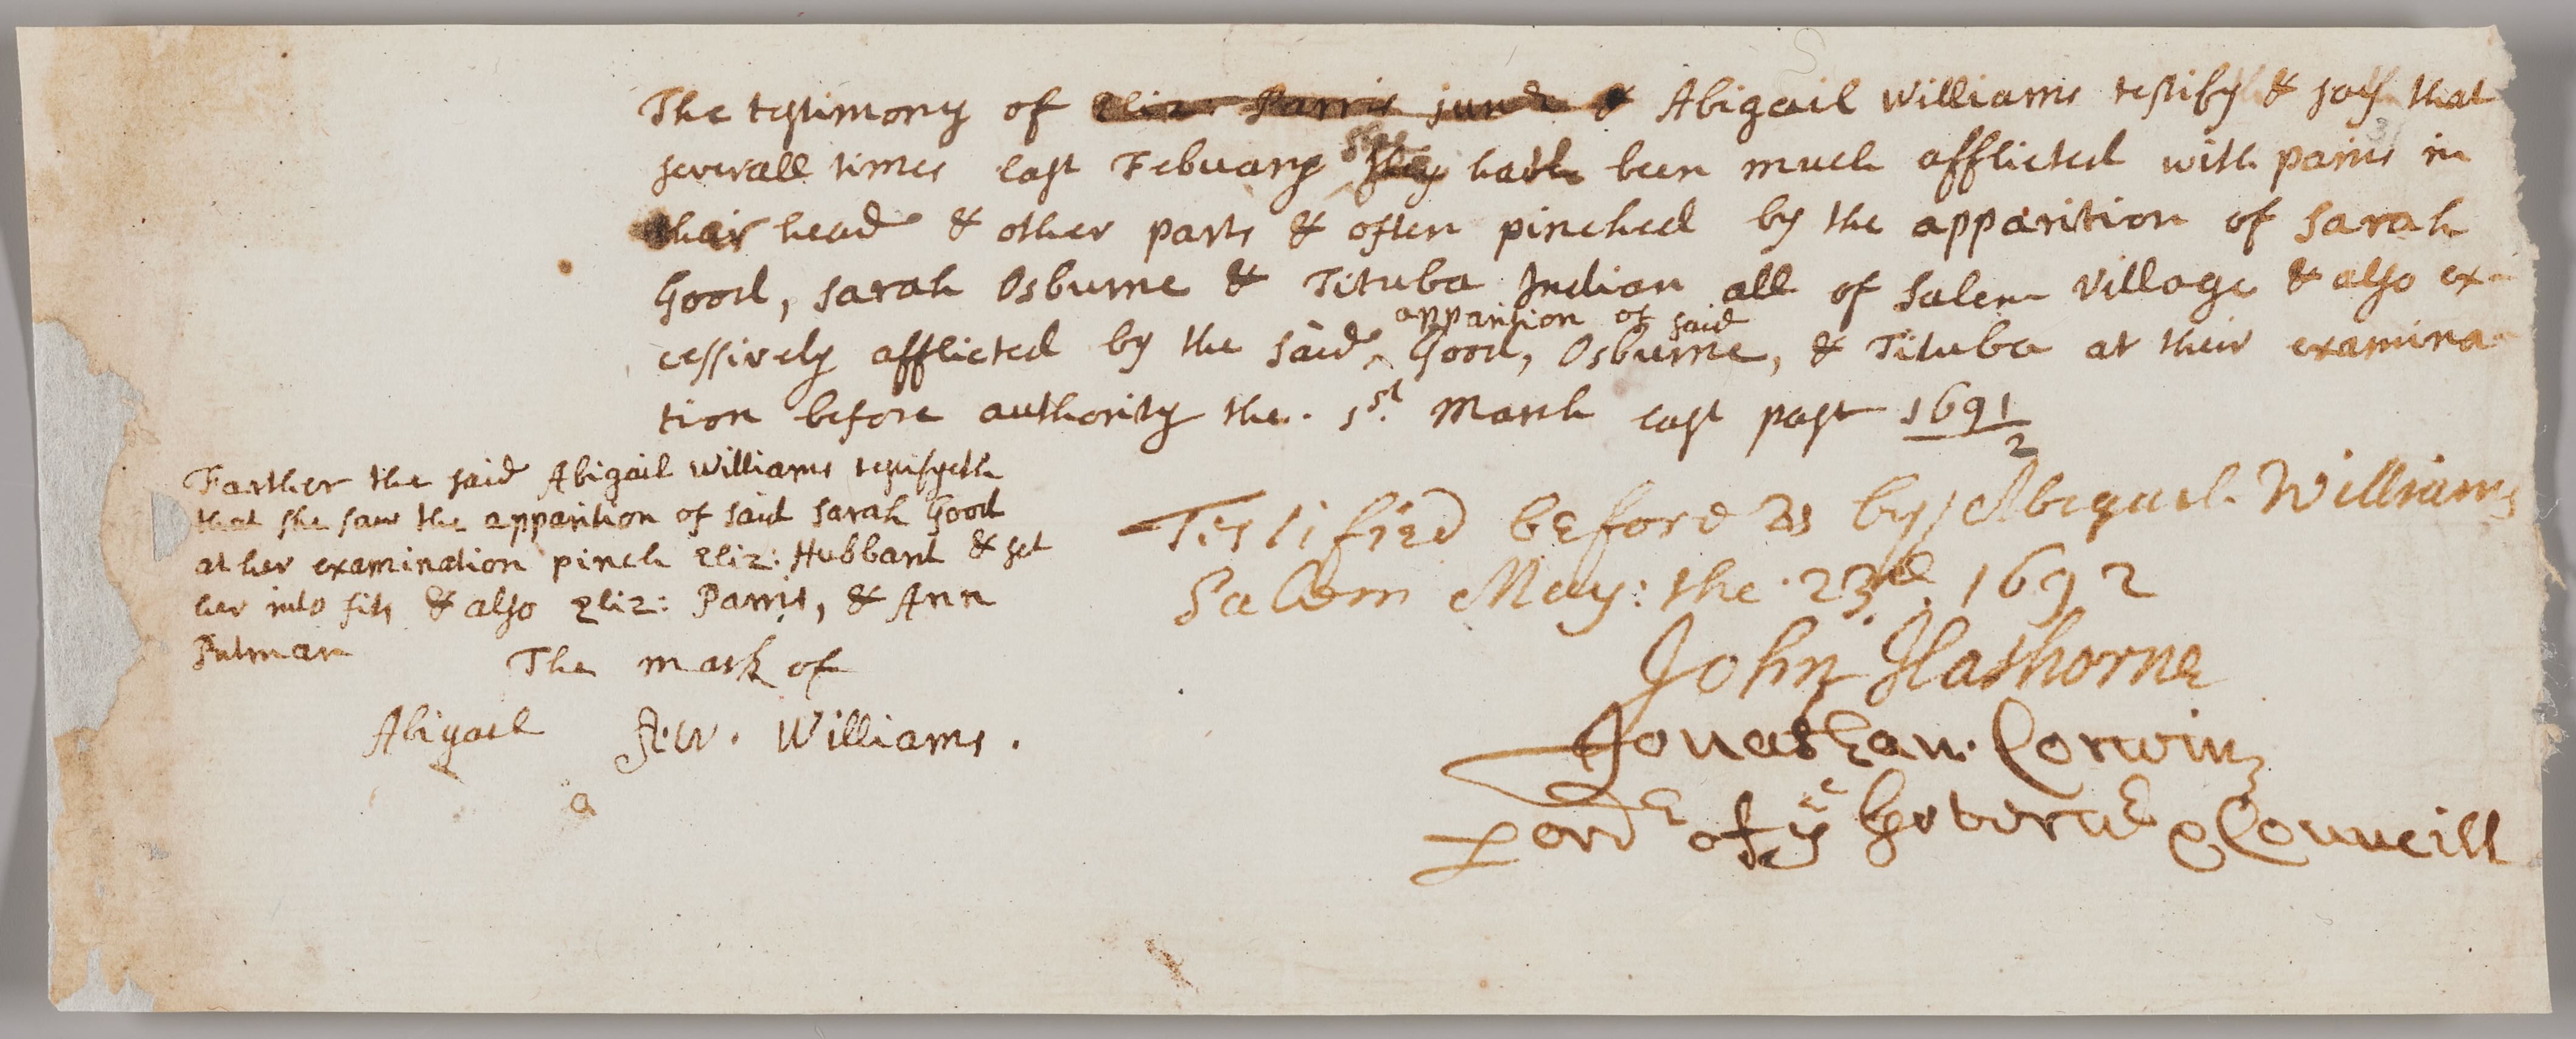 The testimony of Eliz: Parris junr & Abigail Williams testify & say that
severall times last Febuary she they hath been much afflicted with pains in
their head & other parts & often pinched by the apparition of Sarah
Good, Sarah Osburne & Tituba Indian all of Salem Village & also ex-
apparition of said
cessively afflicted by the said ^ Good, Osburne, & Tituba at their examina-
tion before authority the. 1st. March last past 1691/2
Farther the said Abigail Williams testifyeth
that she saw the apparition of said Sarah Good
at her examination pinch Eliz: Hubbard & set
her into fits & also Eliz: Parris, & Ann
Putman
The mark of
Abigail A:W. Williams.
a
Testified before Us by Abigail Williams
Salem May: the 23d. 1692
John Hathorne
Jonathan. Corwin
P ordr of ye Governr & Councill